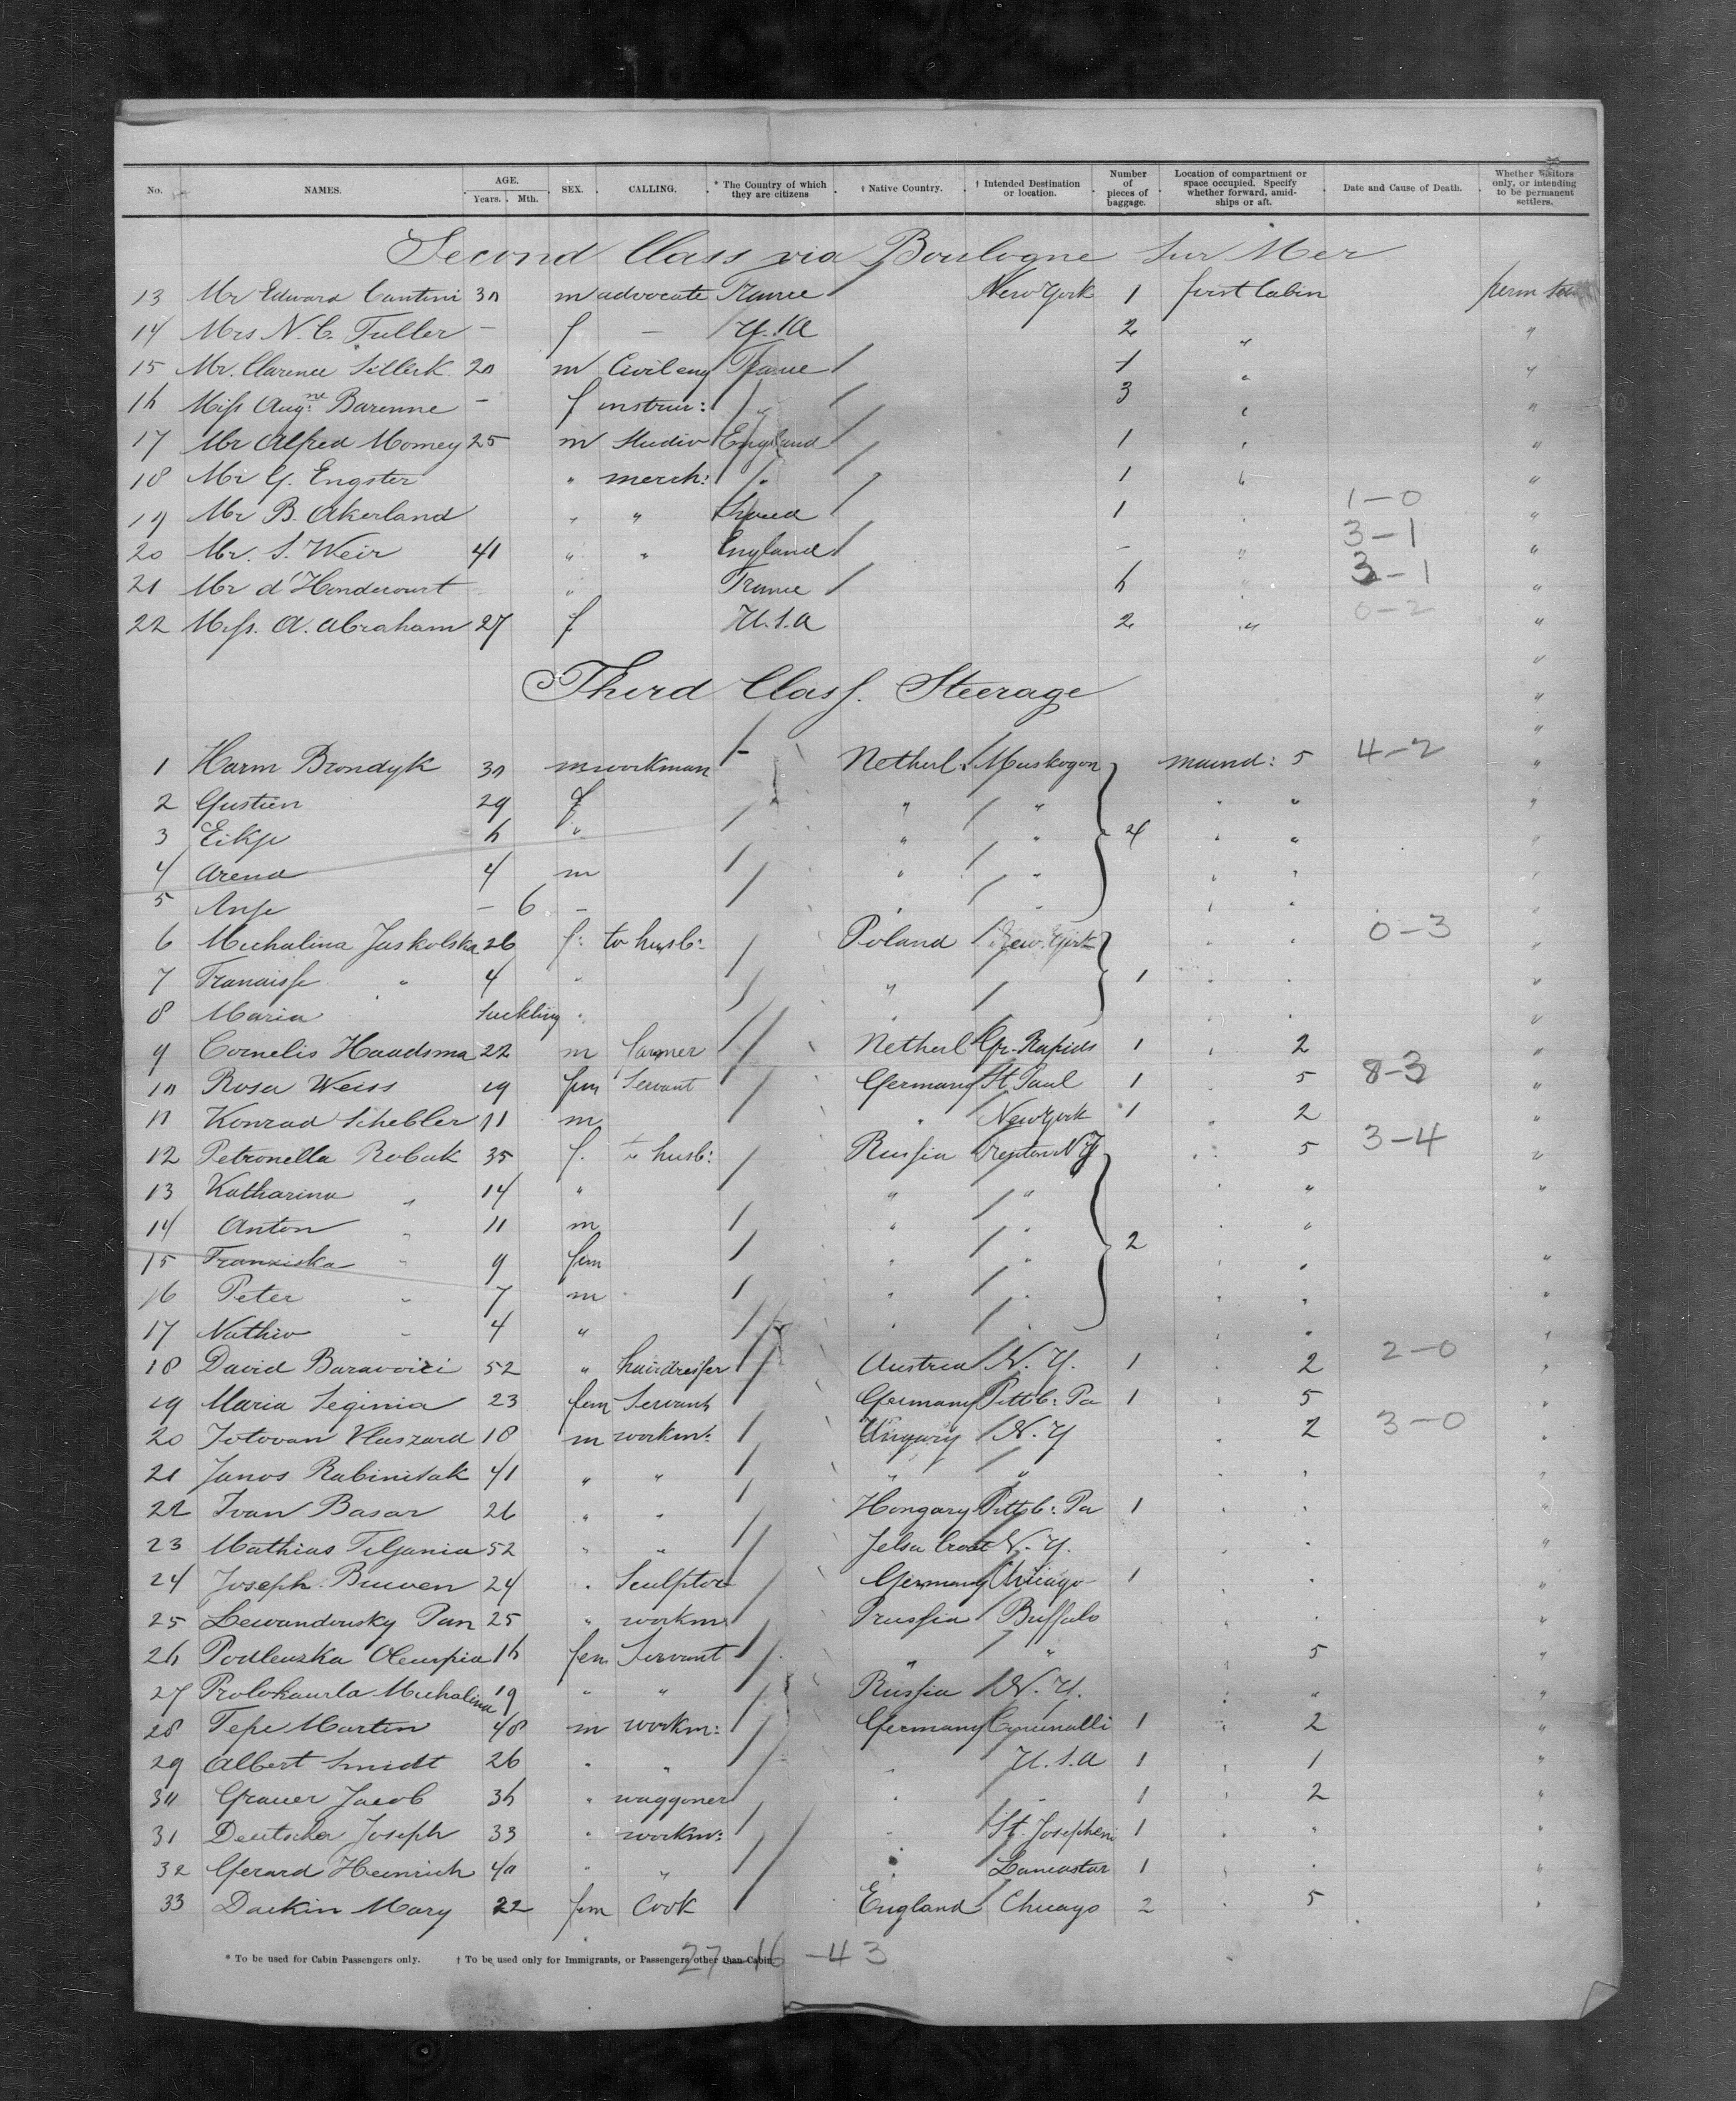 No. NAMES. AGE. Years. Mth. SEX. CALLING. * The Country of which they are citizens † Native Country. † Intended Destination or location. Number of pieces of baggage. Location of compartment or space occupied. Specify whether forward, amidships or aft. Date and Cause of Death. Whether visitors only, or intending to be permanent settlers.
Second Class via Boulogne sur Mer
13 Mr Edward Cantini 30 m advocate France New York 1 first Cabin perm
14 Mrs N. C. Fuller — f — U.S.A 2 " "
15 Mr. Clarence Silleck 20 m Civil eng France 1 " "
16 Miss Augne Barenne — f instruc: " 3 " "
17 Mr Alfred Momey 25 m Studio England 1 " "
18 Mr G. Engster " merch: " 1 " "
19 Mr B. Akerland " " 1 " 1-0 "
20 Mr. S. Weir 41 " " England - " 3-1 "
21 Mr d'Hondecourt " France 6 " 3-1 "
22 Miss. A. Abraham 27 f U.S.A 2 " 0-2 "
Third Class. Steerage
1 Harm Brondyk 30 m workman Netherl. Muskegon 5 4-2 "
2 Gustien 29 f " " " " "
3 Eikje 6 " " " 4 " " "
4 Arend 4 m " " " " "
5 Anje — 6 - " " " " "
6 Michalina Jaskolska 26 f: to husb: Poland New York " " 0-3 "
7 " 4 " " 1 " " "
8 Maria suckling " " " " "
9 Cornelis Haadsma 22 m farmer Netherl Gr. Rapids 1 " 2 "
10 Rosa Weiss 19 fem Servant Germany St Paul 1 " 5 8-3 "
11 Konrad Schebler 11 m " New York 1 " 2 "
12 Petronella Robak 35 f. to husb: Russia Trenton NJ " 5 3-4 "
13 Katharina " 14 " " " " " "
14 Anton " 11 m " " " "
15 Franziska " 9 fem " " 2 " " "
16 Peter " 7 m " " " " "
17 " 4 " " " " " "
18 David Baravoici 52 " hairdresser Austria N. Y. 1 " 2 2-0 "
19 Maria Seginia 23 fem Servant Germany Pittsb: Pa 1 " 5 "
20 18 m workm: Ungary N. Y " 2 3-0 "
21 Janos 41 " " " " " " "
22 Ivan Basar 26 " " Hongary Pittsb: Pa 1 " " "
23 Mathias 52 " " Jelsa Croat N. Y. " " "
24 Joseph Buwen 24 " Sculptor Germany Chicago 1 " " "
25 Lewandowsky Pan 25 " workm Prussia Buffalo " " "
26 16 fem Servant " " " 5 "
27 Michalina 19 " " Russia N. Y. " " "
28 Tepe Martin 48 m workm: Germany 1 " 2 "
29 Albert Smidt 26 " " " U.S.A 1 " 1 "
30 Grauer Jacob 36 " waggoner " " 1 " 2 "
31 Deutscher Joseph 33 " workm: " St. Joseph 1 " " "
32 Gerard Heinrich 40 " " " Lancaster 1 " " "
33 Dackin Mary 22 fem Cook England Chicago 2 " 5 "
* To be used for Cabin Passengers only. † To be used only for Immigrants, or Passengers other than Cabin
27-16-43